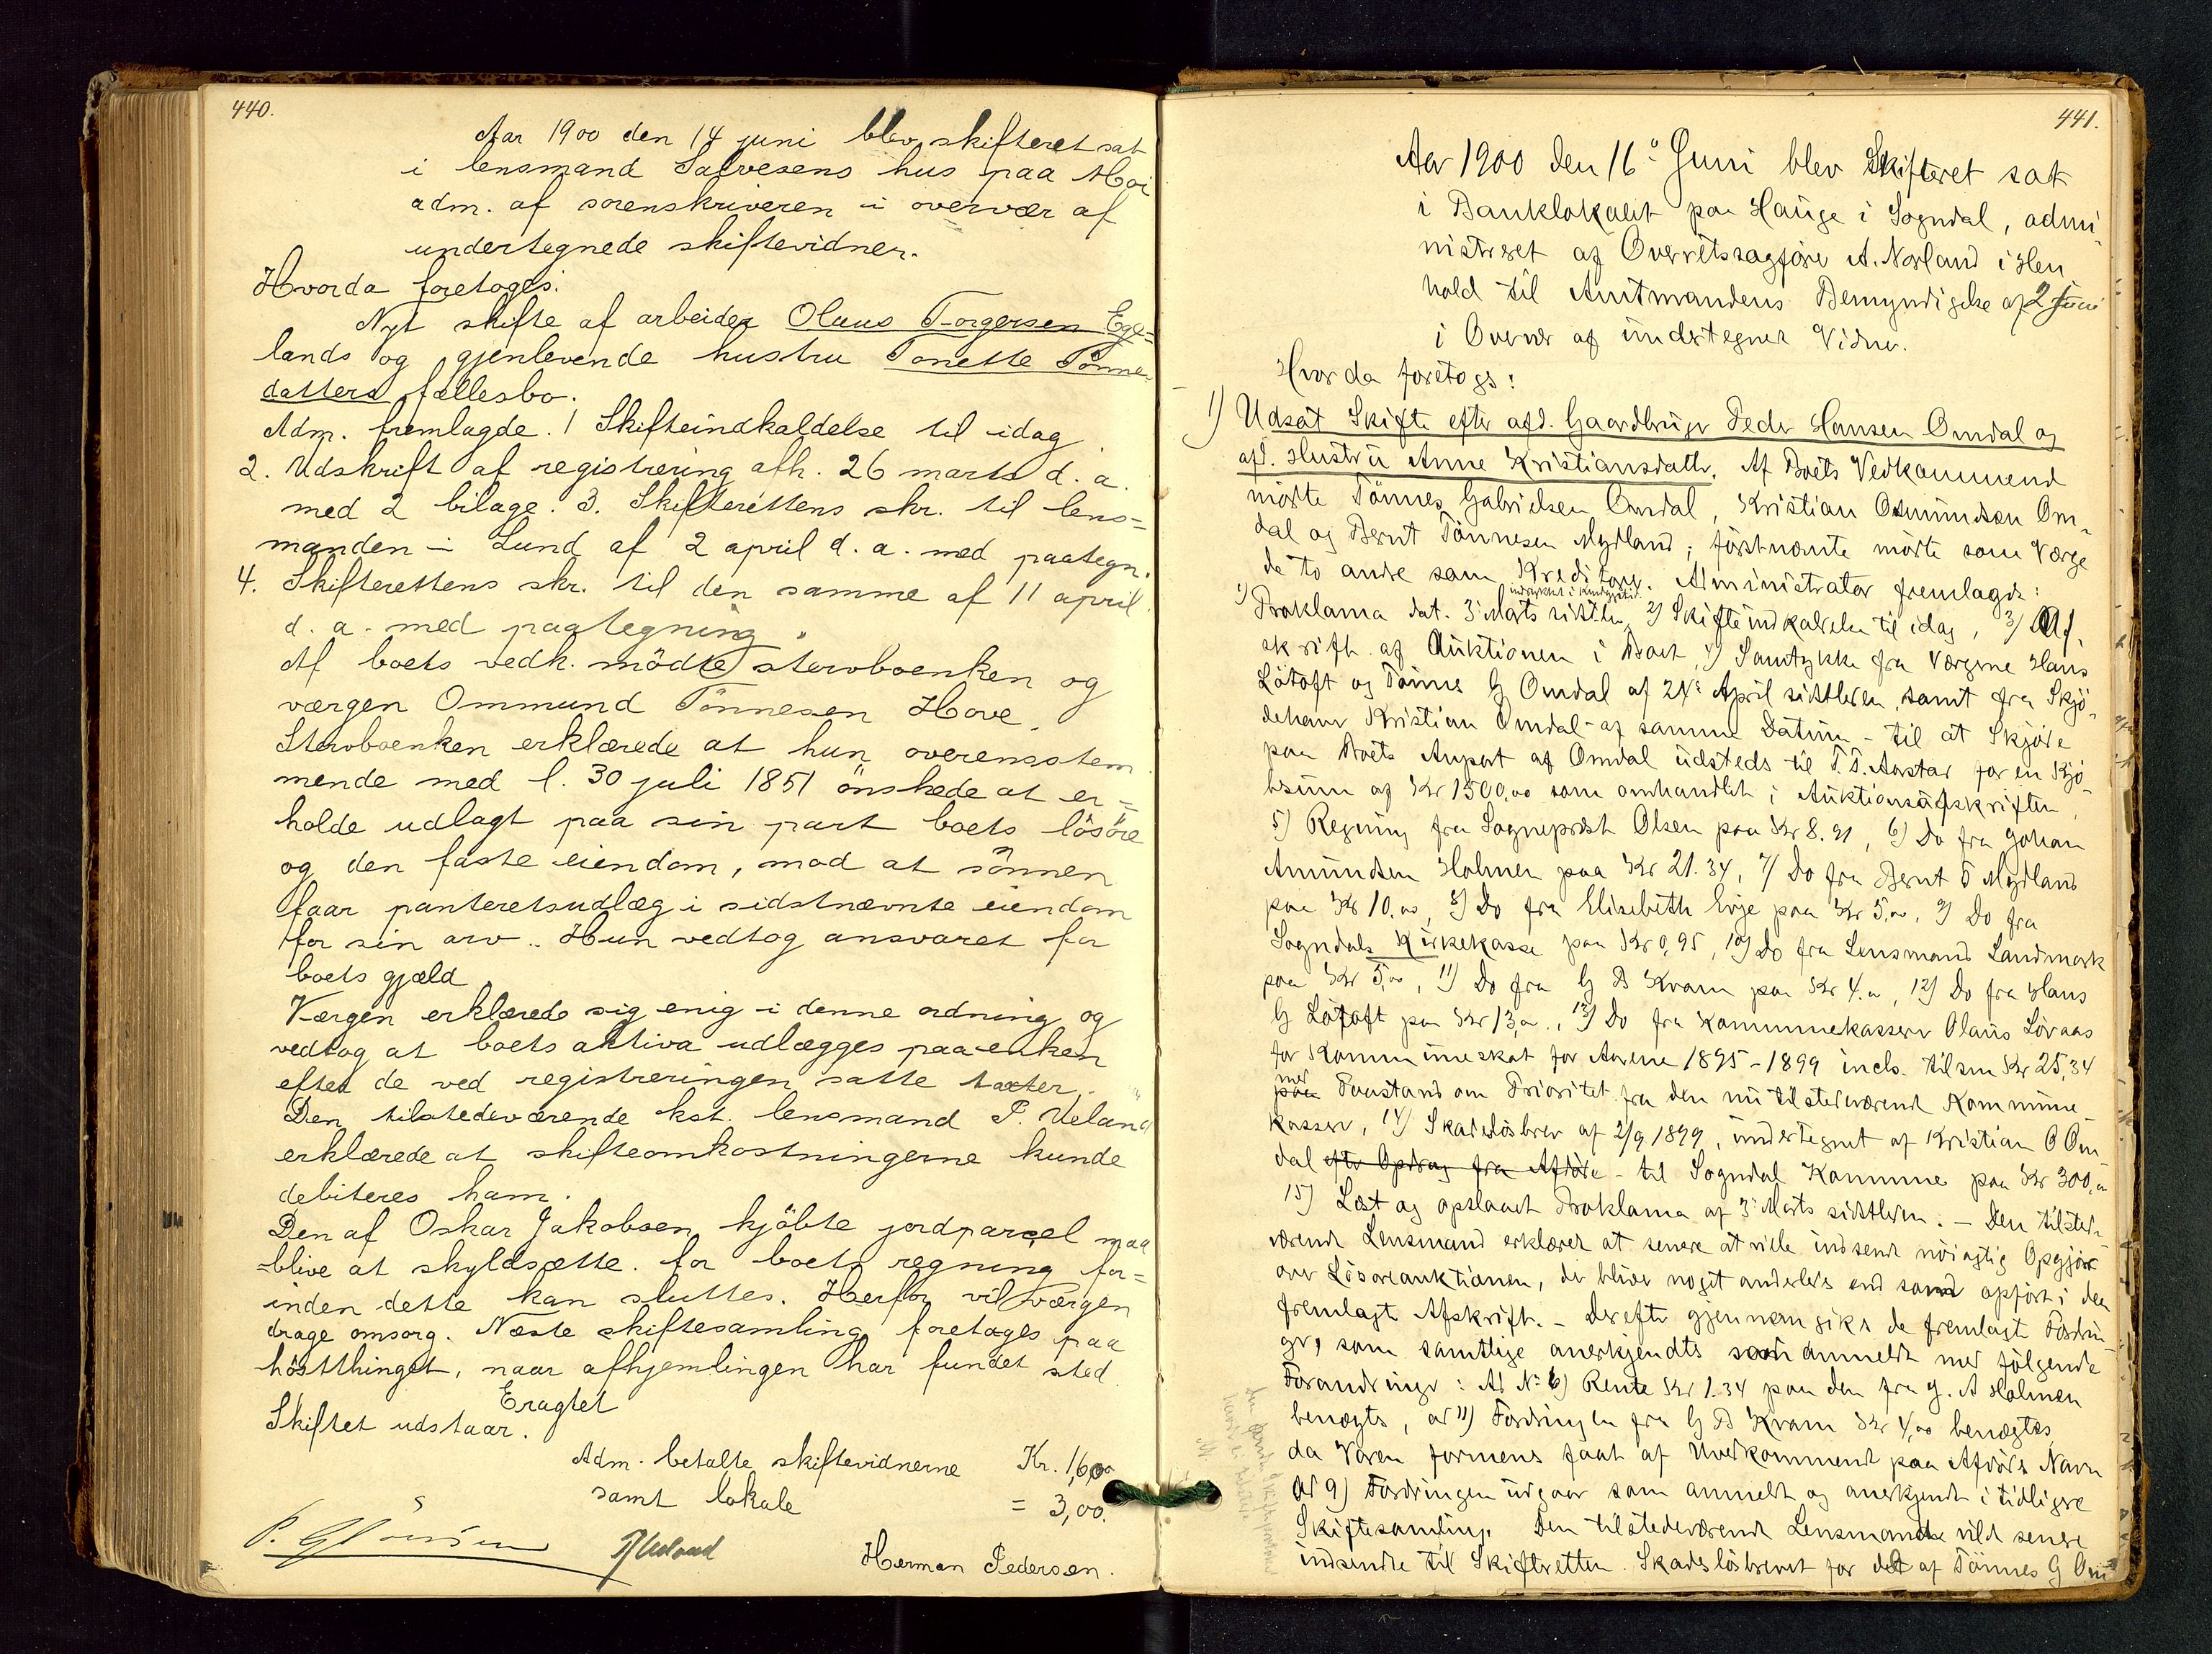 440.
Aar 1900 den 14 juni blev skifteret sat
i lensmand Salvesens hus paa Moi
adm. af sorenskriveren i overvær af
undertegnede skiftevidner.
Hvorda foretoges:
Nyt skifte af arbeider Olaus Torgersen Ege=
lands og gjenlevende hustru Tonette Tönne=
datters fællesbo.
Adm. fremlagde. 1 Skifteindkaldelse til idag.
2. Udskrift af registrering afh. 26 marts d. a.
med 2 bilage. 3. Skifterettens skr. til lens=
manden i Lund af 2 april d. a. med paategn.
4. Skifterettens skr. til den samme af 11 april
d. a. med paategning.
Af boets vedk. mödte stervboenken og
værgen Ommund Tönnesen Hove.
Stervboenken erklærede at hun overensstem
mende med l. 30 juli 1851 önskede at er=
holde udlagt paa sin part boets lösöre
og den faste eiendom, mod at sönnen
faar panteretsudlæg i sidstnævnte eiendom
for sin arv. Hun vedtog ansvaret for
boets gjæld
Værgen erklærede sig enig i denne ordning og
vedtog at boets aktiva udlægges paa enken
efter de ved registreringen satte taxter.
Den tilstedeværende kst. lensmand P. Ueland
erklærede at skifteomkostningerne kunde
debiteres ham.
Den af Oskar Jakobsen kjöbte jordparcel maa
blive at skyldsætte. for boets regning for=
inden dette kan sluttes. Herfor vil værgen
drage omsorg. Næste skiftesamling foretages paa
höstthinget, naar afhjemlingen har fundet sted.
Eragtet
Skiftet udstaar.
Adm. betalte skiftevidnerne Kr. 1,60
samt lokale = 3,00.
P. Ueland
Herman Pedersen.
441.
Aar 1900 den 16de Juni blev Skifteret sat
i Banklokalet paa Hauge i Sogndal, admi-
nistreret af Overretssagförer A. Norland i Hen
hold til Amtmandens Bemyndigelse af 2 Juni
i Overvær af undertegnede Vidner.
Hvorda foretoges:
1) Udsat Skifte efter afd. Gaardbruger Peder Hansen Omdal og
afd. Hustru Anne Kristiansdatter. Af Boets Vedkommende
mödte Tönnes Gabrielsen Omdal, Kristian Osmundsen Om-
dal og Bernt Tönnesen Mydland; förstnævnte mödte som Værge
de to andre som Kreditorer. Administrator fremlagde:
1) Proklama dat. 3 Marts sidstleden 2) Skifteindkaldelse til idag, 3) Af-
skrift af Auktionen i Boet 4) Samtykke fra Værgerne Hans
Lötoft og Tönnes G Omdal af 21de April sidstleden, samt fra Skjö-
dehaver Kristian Omdal af samme Datum - til at Skjöde
paa Boets Anpart af Omdal udstedes til T. T. Aarstad for en Kjö-
besum af Kr 1500,00 som omhandlet i Auktionsafskriften,
5) Regning fra Sogneprest Olsen paa Kr 8.91, 6) Do fra Johan
Amundsen Holmen paa Kr 21.34, 7) Do fra Bernt T Mydland
paa Kr 10,00, 8) Do fra Elisebeth Eije paa Kr 5,00, 9) Do fra
Sogndals Kirkekasse paa Kr 0,95, 10) Do fra Lensmand Landmark
paa Kr 5,00, 11) Do fra G B Kvam paa Kr 4.00, 12) Do fra Hans
G Lötoft paa Kr 13,00, 13) Do fra Kommunekasserer Olaus Lövaas
for Kommuneskat for Aarene 1895-1899 incls. tilsm Kr 25,34
med Paastand om Prioritet fra den nu tilstedeværende Kommune-
kasserer, 14) Skadeslösbrev af 2/9 1899, undertegnet af Kristian O Om
dal efter Opdrag fra Afdöde - til Sogndal Kommune paa Kr 300,00
15) Læst og opslaaet Proklama af 3 Marts sidstleden. - Den tilstede-
værende Lensmand erklæred at senere at ville indsende nöiagtig Opgjör
over Lösöreauktionen, der bliver noget anderledes end som opfört i den
fremlagte Afskrift. - Derefter gjennemgikes de fremlagte Fordrin
ger, som samtlige anerkjendtes som anmeldt med fölgende
Forandringer: Ad No 6) Rente Kr 1.34 paa den fra J. A Holmen
benægtes, ad 11) Fordringen fra G B Kvam Kr 4,00 benægtes,
da Varen formenes faaet af Uvedkommende paa Afdödes Navn
Ad 9) Fordringen udgaar som anmeldt og anerkjendt i tidligere
Skiftesamling. Den tilstedeværende Lensmand vilde senere
indsende til Skifteretten Skadeslösbrevet for det af Tönnes G Om